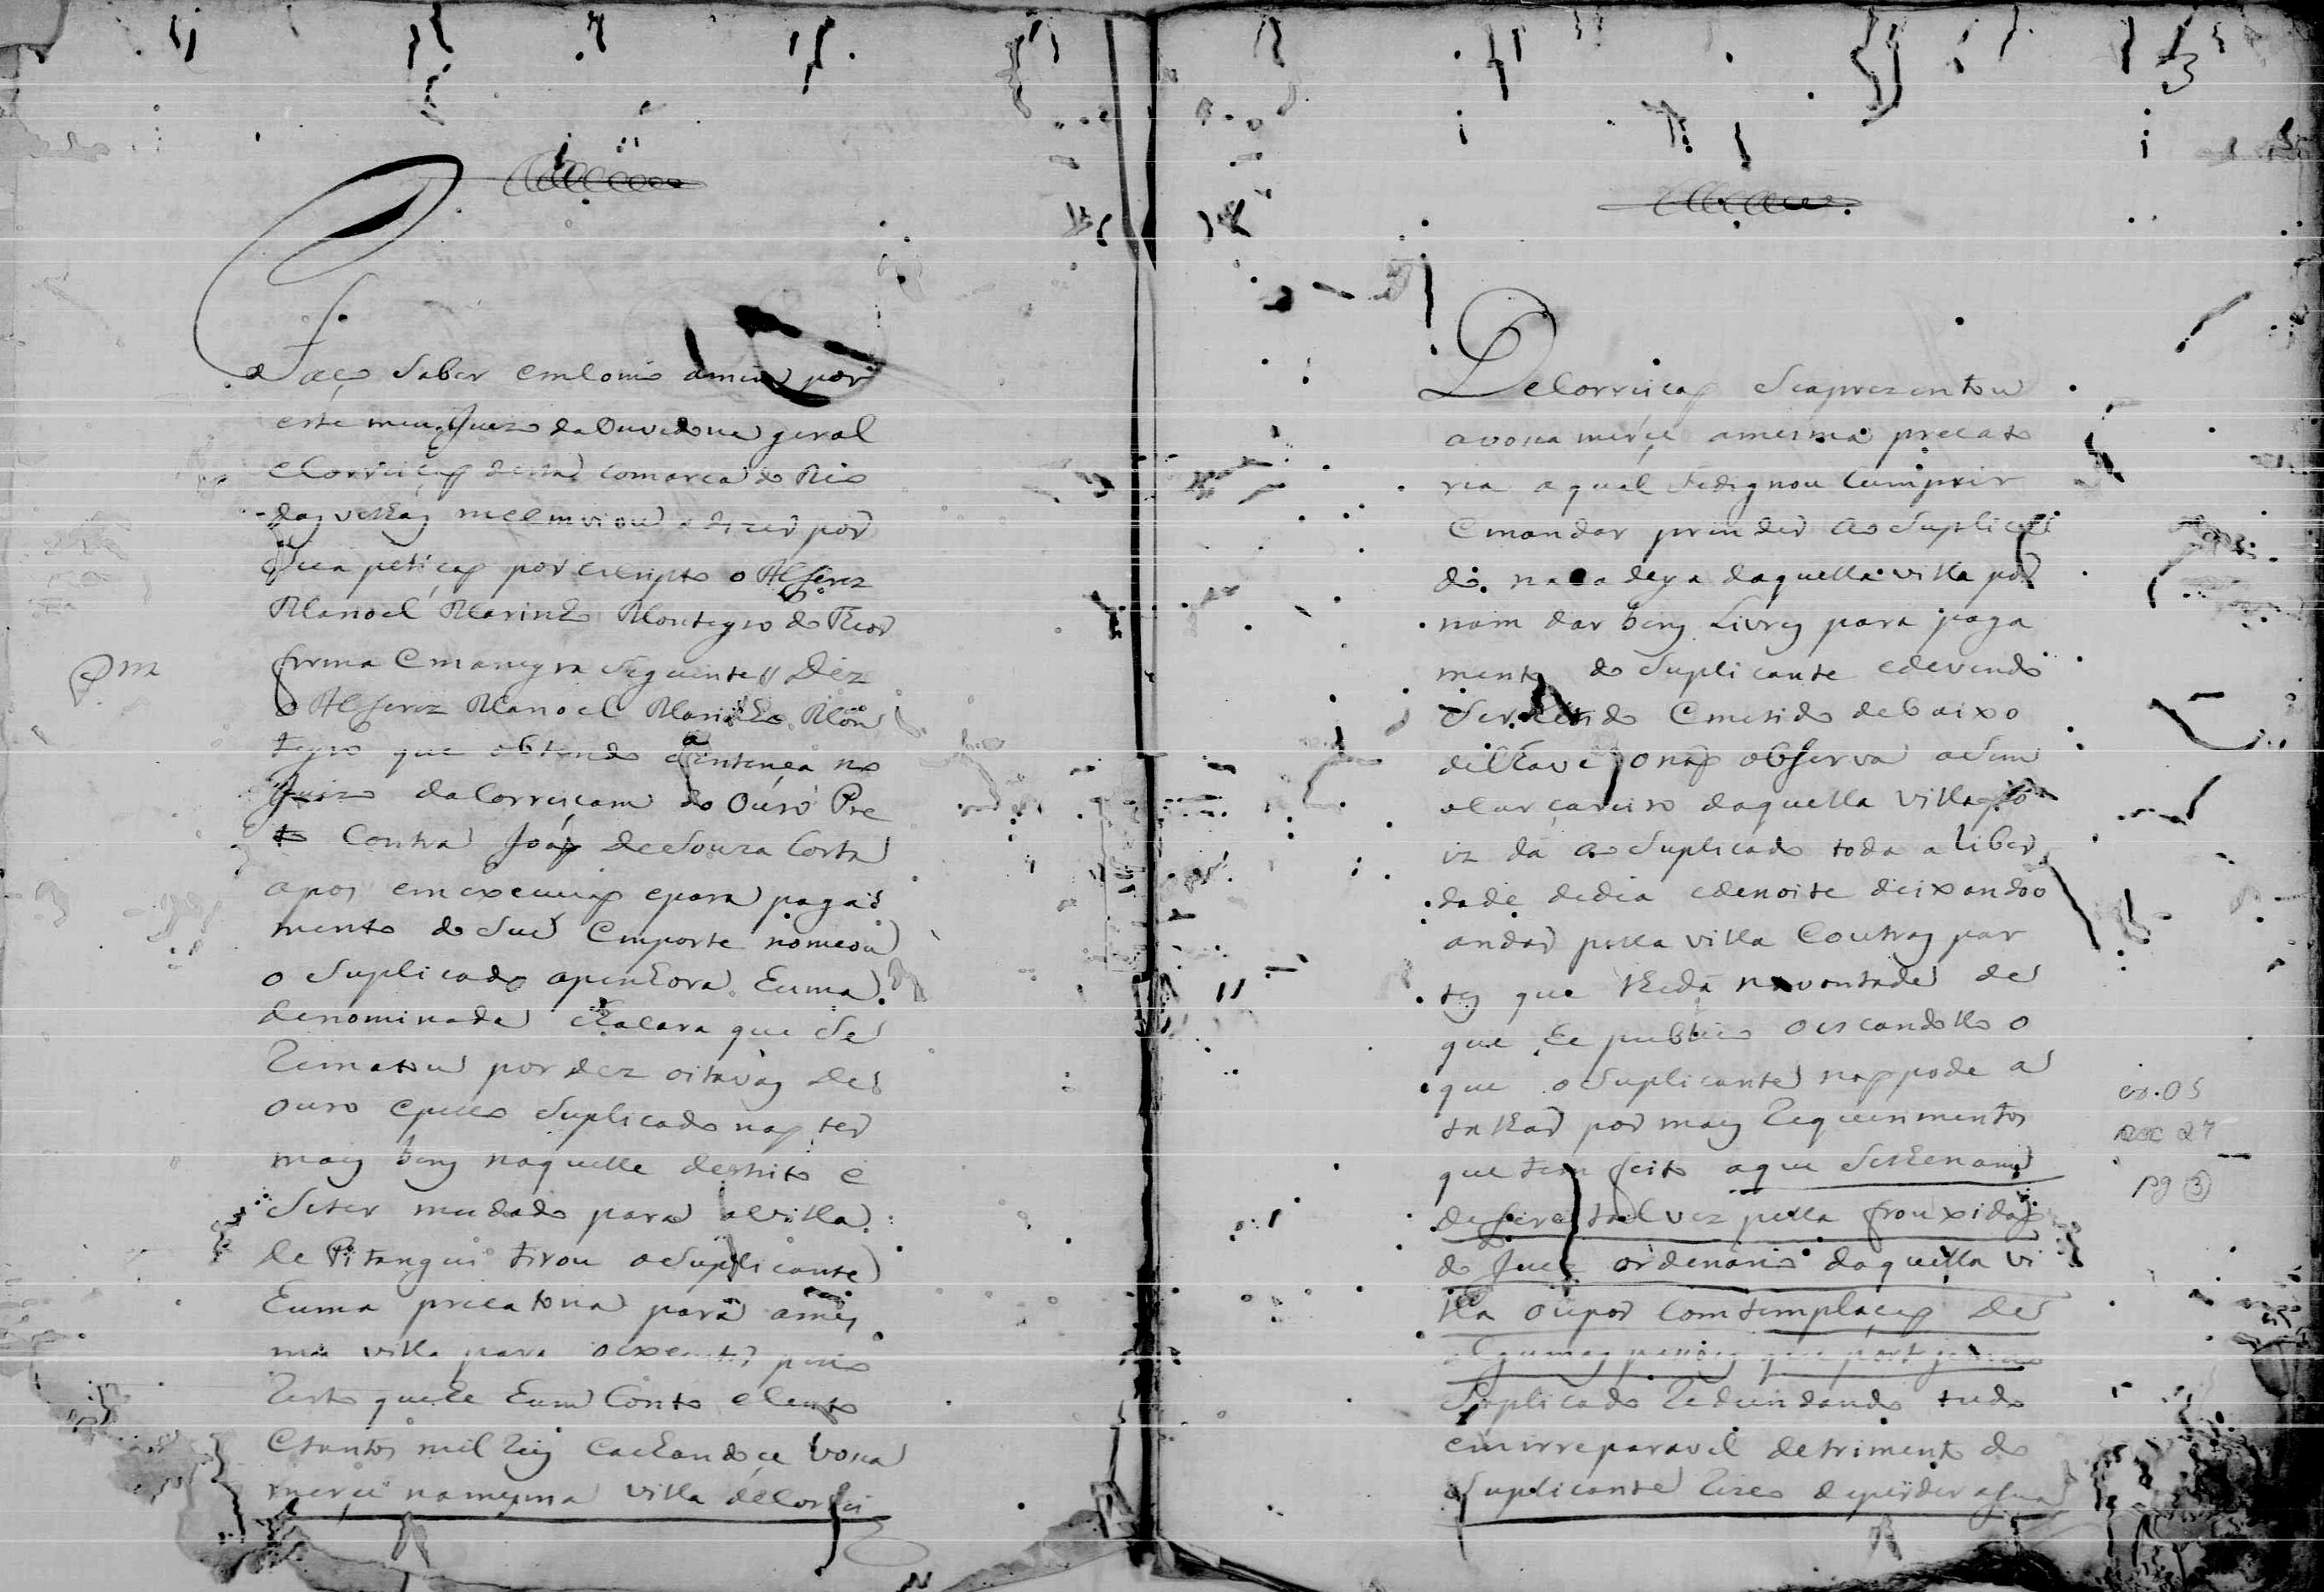 Faço Saber emComo amim por
este meu Juizo da Ouvedoria geral
eCorreiçaõ desta Comarca do Rio
das velhas meemviou adizer por
Sua petiçaõ por escripto o Alferez
Manoel Marinho Monteyro do Theor
forma Emaneyra Seguinte// Diz
o Alferez Manoel Marinho Mon
teyro que obtendo Sentença no
Juizo daCorreiçam do Ouro Pre
to Contra Joaõ deSouza Costa
apos emexecuçaõ epara paga
mento do Seu Emporte nomeou
o Suplicado apenhora huma
denominada chacara que Se
Rematou por dez oitavas de
ouro epello Suplicado naõ ter
mais bens naquelle destrito e
Seter mudado para avilla
de Pitangui tirou oSuplicante
huma precatoria para ames
ma villa para oexecutar pello
Resto quehe hum Conto eCento
Etantos mil Reis Eachandoce vossa
merçe namesma villa deCorrei
pm
3
DeCorreiçaõ Seaprezentou
avossa merçe amesma precato
ria aqual Sedignou Cumprir
Emandar prinder ao Suplica
do nacadeya daquella villa por
nam dar bens Livres para paga
mento do Suplicante edevendo
Ser Retido Emetido debaixo
dechave onaõ observa aSim
oCarçareiro daquella villa po
iz da ao Suplicado toda a liber
dade dedia edenoite deixandoo
andar pella villa Eoutras par
tes que lheda navontade de
que he publico
que oSuplicante naõ pode a
talhar por mais Requerimentos
que tem feito aque Selhenam
defere talvez pella frouxidaõ
do Juiz ordenario daquella vi
lla oupor Comtemplaçaõ de
algumas pessoas que
Suplicado Redundando tudo
emirreparavel detrimento do
Suplicante deperder asua
cx. 05
doc 27
pg 3